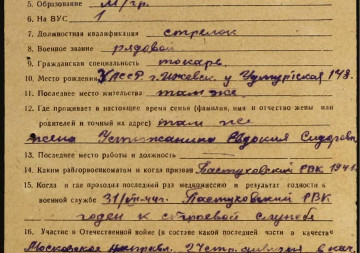 5. Образование м/гр.
6. На ВУС 1
7. Должностная квалификация стрелок
8. Военное звание рядовой
9. Гражданская специальность токарь
10. Место рождения УАССР г. Ижевск у Удмуртская 148.
11. Последнее место жительства там же
12. Где проживает в настоящее время семья (фамилия, имя и отчество жены или
родителей и точный их адрес) там же
жена Устюжанина Сидоровна
13. Последнее место работы и должность
14. Каким райгорвоенкоматом и когда призван Пастуховский РВК 1941
15. Когда и где проходил последний раз медкомиссию и результат годности к
военной службе Пастуховский РВК
годен к строевой службе
16. Участие в Отечественной войне (в составе какой последней части в качеств
Московское направл. в кач.